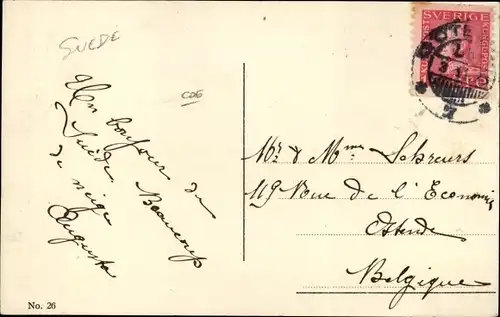 SUEDE
CDE
Un bonjour de
Suède.
Beaucoup
de neige
Augusta
SVERIGE
GÖTE
Mr & Mme Schreurs
49 Rue de l'Economie
Ostende
Belgique
No. 26